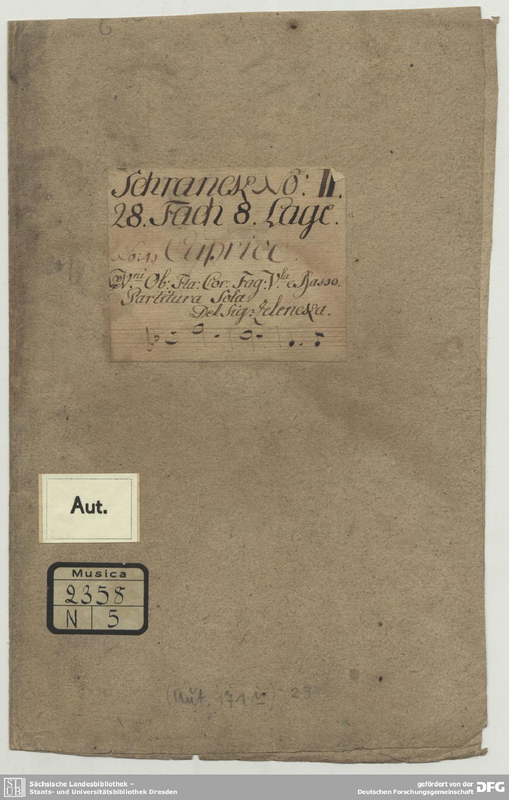 Schranck No: II.
28. Fach 8. Lage.
No: 1) Caprice
VVni Ob: Fta: Cor: Fag: V.la e Basso.
Partitura Sola
Del Sig: Zelencka.
Aut.
Musica
2358
N 5
23
Sächsische Landesbibliothek –
Staats- und Universitätsbibliothek Dresden
gefördert von der
Deutschen Forschungsgemeinschaft DFG